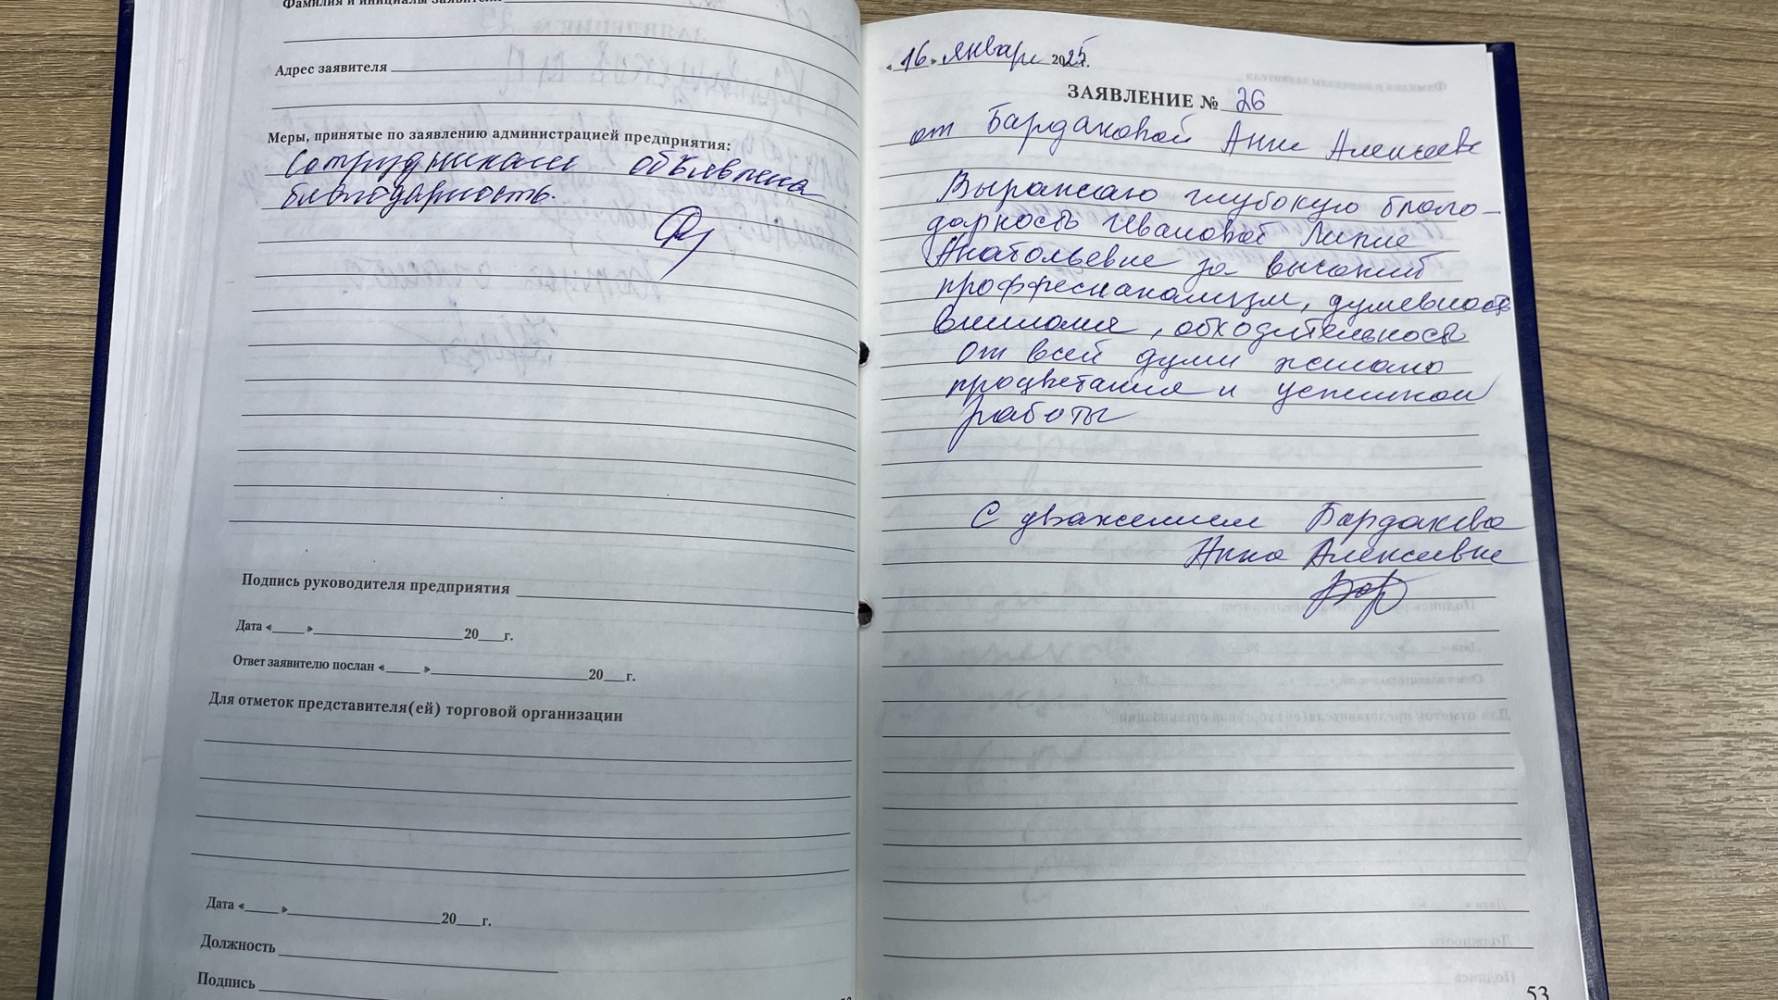 Фамилия и инициалы заявителя
Адрес заявителя
Меры, принятые по заявлению администрацией предприятия:
Сотрудникам объявлена
благодарность.
Подпись руководителя предприятия
Дата «___» ___ 20___г.
Ответ заявителю послан «___» ___ 20___г.
Для отметок представителя(ей) торговой организации
Дата «___» ___ 20___г.
Должность
Подпись
«16» январь 2025г.
ЗАЯВЛЕНИЕ № 26
от Бардаковой Анны Алексеевне
Выражаю глубокую благо-
дарность Ивановой Лилие
Анатольевне за высокий
проффесианализм, душевность
внимания, обходительность
От всей души желаю
процветания и успешной
работы
С уважением Бардакова
Анна Алексеевне
53